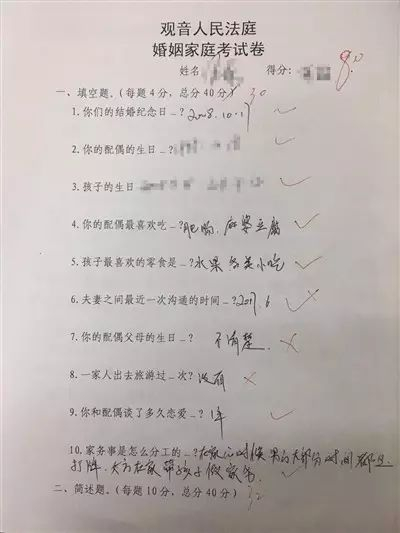 观音人民法庭
婚姻家庭考试卷
姓名 得分: 80
一、填空题。(每题4分，总分40分) 30
1.你们的结婚纪念日_?2008.10.17
2.你的配偶的生日_?
3.孩子的生日
4.你的配偶最喜欢吃_?肥肠，麻婆豆腐
5.孩子最喜欢的零食是_?水果 各类小吃
6.夫妻之间最近一次沟通的时间_?2017.6
7.你的配偶父母的生日_? 不清楚
8.一家人出去旅游过_次?没有
9.你和配偶谈了多久恋爱_?1年
10.家务事是怎么分工的_?在家的时候 男的大部分时间都
打牌，女方在家带孩子做家务
二、简述题。(每题10分，总分40分)